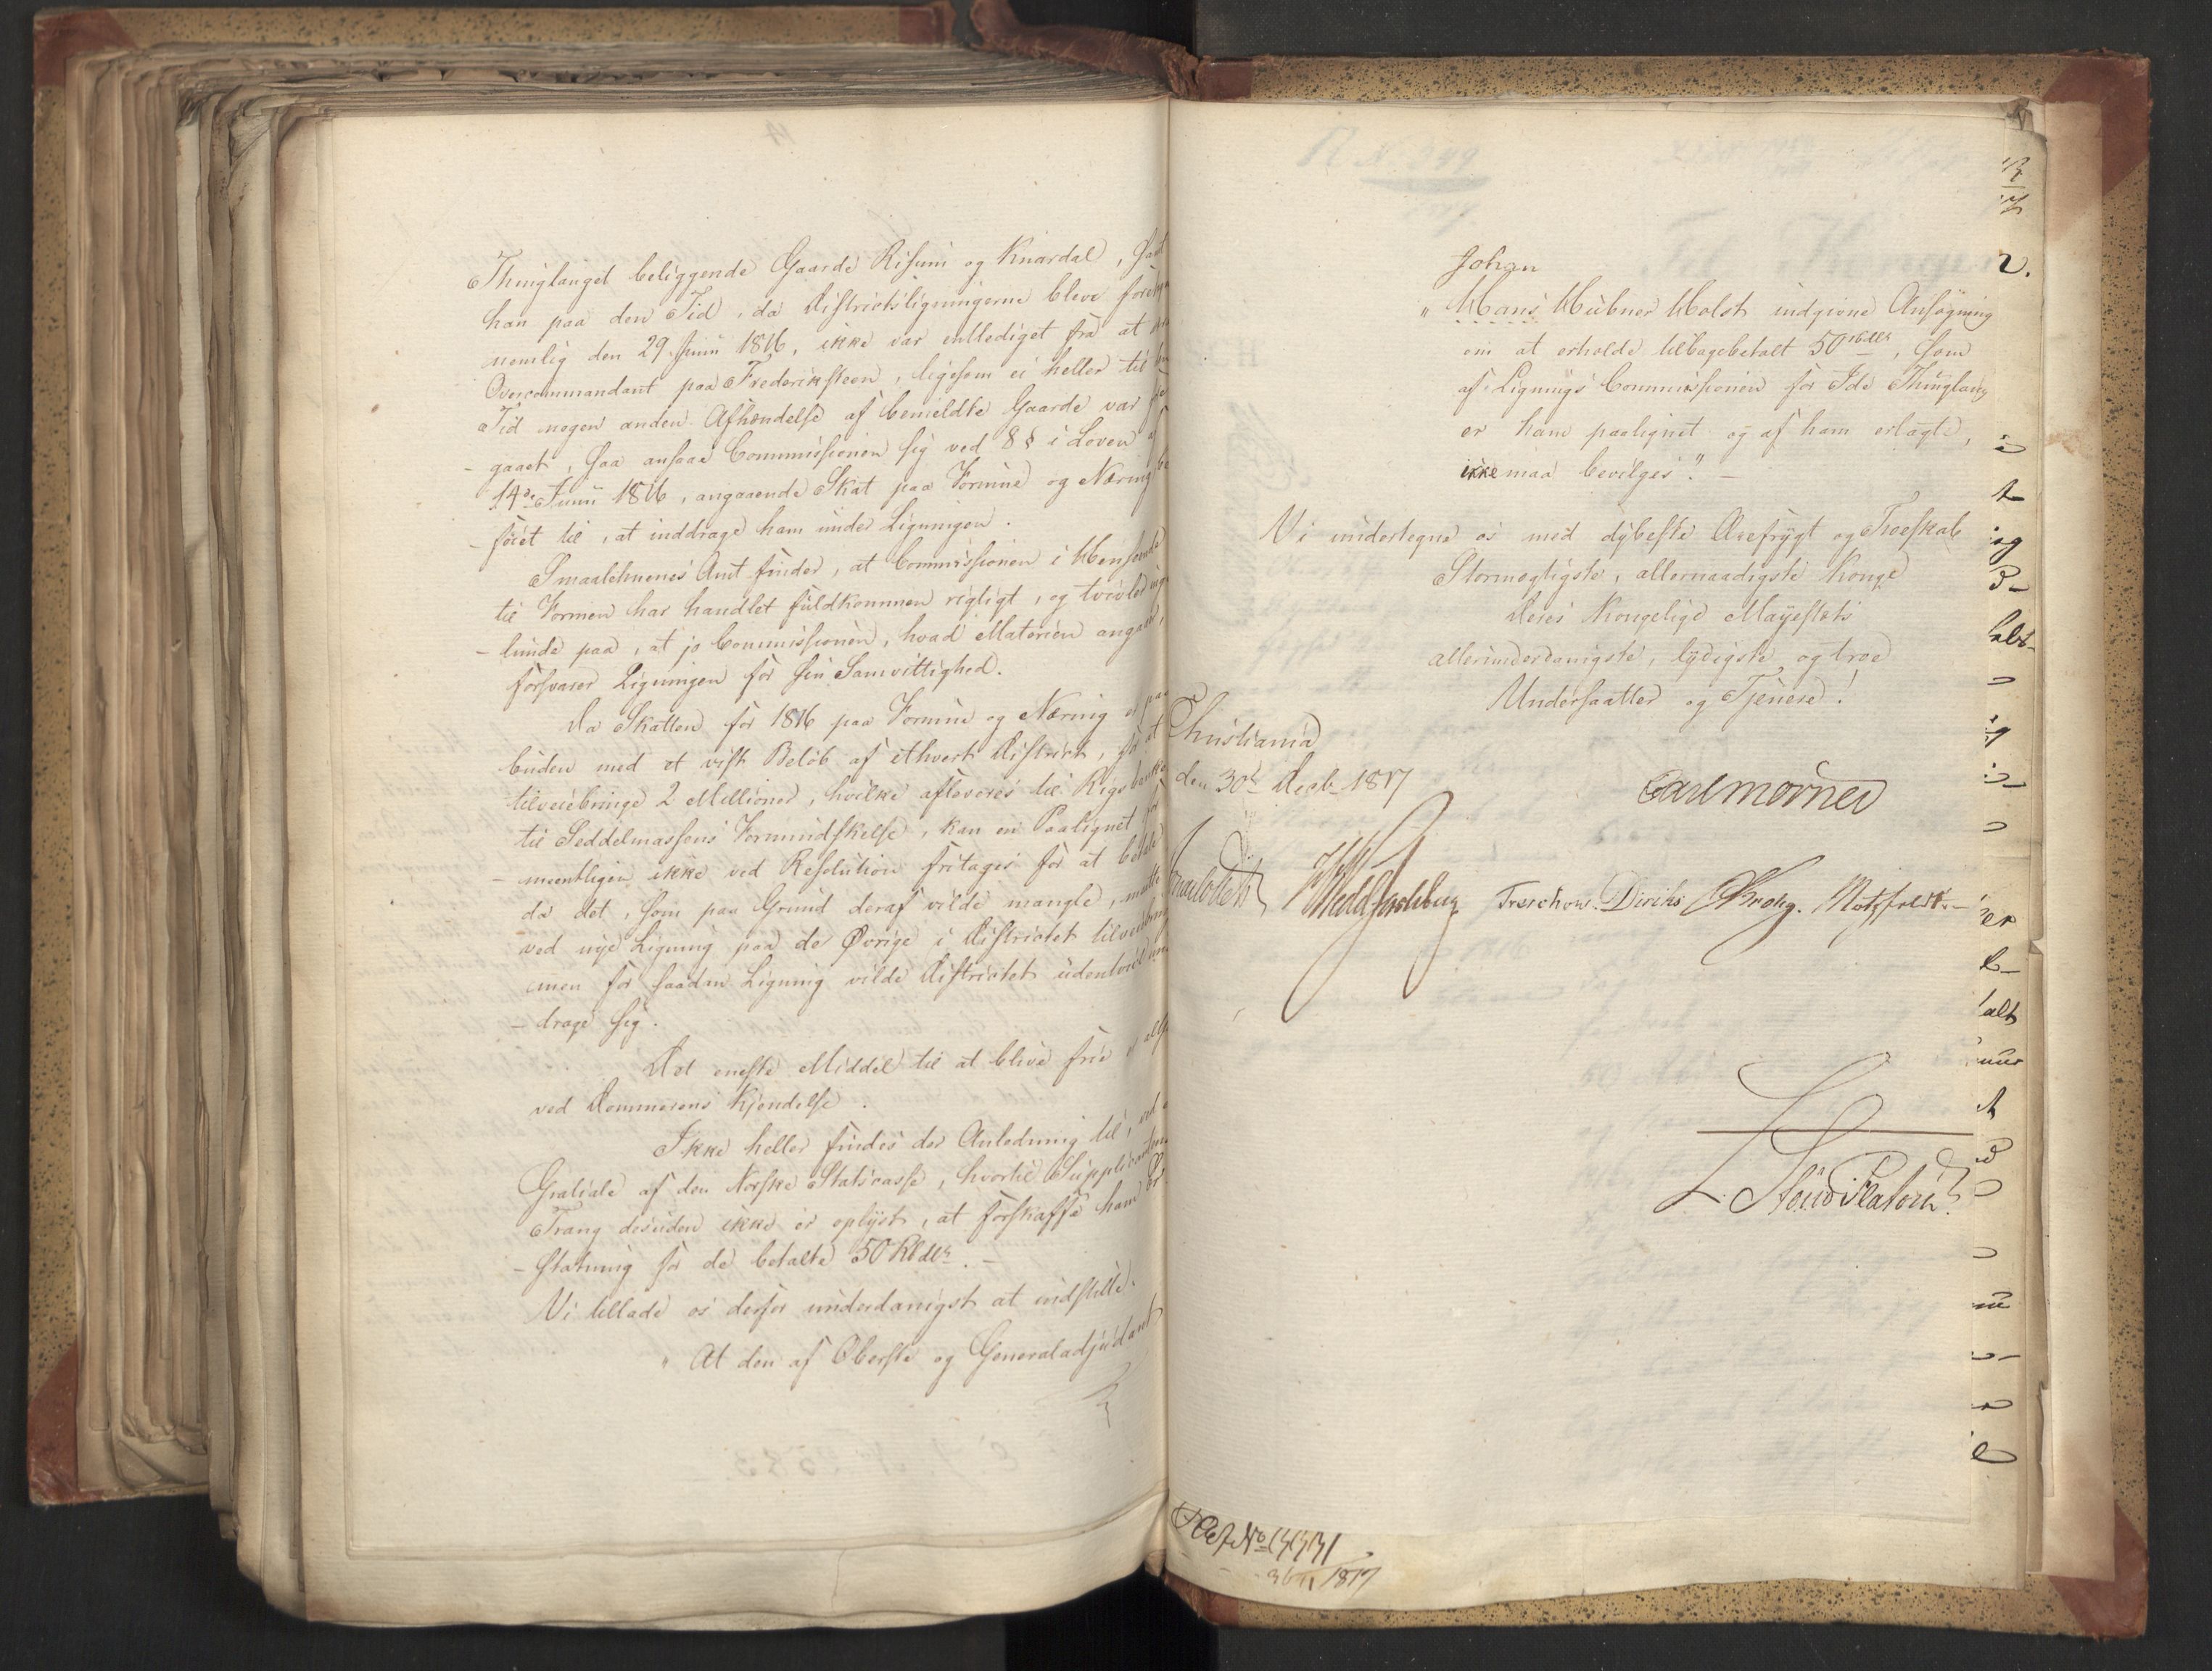 Thinglauget beliggende Gaarde Risum og Knardal, havd
han paa den Tid, da Districtsligningerne bleve foretagn
nemlig den 29. Junii 1816, ikke var entlediget fra at
Overcommandant paa Frederiksteen, ligesom ei heller til
Tid nogen anden Afhændelse af bemeldte Gaarde var
- gaaet, saa ansaae Commissionen sig ved 8 § i Loven af
14de Junii 1816, angaaende Skat paa Formue og Næring be
- føiet til, at inddrage ham under Ligningen.
Smaalehnenes Amt finder, at Commissionen i Henseende
til Formen har handlet fuldkommen rigtigt, og tvivler ingen
- lunde paa, at jo Commissionen, hvad Materien angaaer,
forsvarer Ligningen for sin Samvittighed.
Da Skatten for 1816 paa Formue og Næring er paa
buden med et vist Beløb af ethvert District, for at
tilveiebringe 2 Millioner, hvilke afleveres til Rigsbanken
til Seddelmassens Formindskelse, kan en Paalignet for
- meentligen ikke ved Resolution fritages for at betale
da det, som paa Grund deraf vilde mangle, maatte
ved nye Ligning paa de Øvrige i Districtet tilveiebring
men for saadan Ligning vilde Districtet udentvivl und
- drage sig.
Det eneste Middel til at blive frie er altsaa
ved Dommerens Kjendelse.
Ikke heller findes der Anledning til, ved
Gratiale af den Norske Statscasse, hvortil Supplicantens
Trang desuden ikke er oplyst, at forskaffe ham Er
- statning for de betalte 50 Rbdlr. -
Vi tillade os derfor underdanigst at indstille:
" At den af Oberste og Generaladjudant
R N. 349
Johan
" Hans Hübner Holst indgivne Ansøgning
om at erholde tilbagebetalt 50 rbdlr, som
af Lignings Commissionen for Ide Thinglaug
er ham paalignet og af ham erlagte,
ikke maa bevilges". -
Vi undertegne os med dybeste Ærefrygt og Troeskab
Stormægtigste, allernaadigste Konge
Deres Kongelige Mayestæts
allerunderdanigste, lydigste og troe
Undersaatter og Tjenere!
Christiania
den 30te Decbr 1817
Carl mörner
Wedel Jarlsberg Treschow. Diriks Krohg. Motzfeldt. -
L. Stoud Platou
1817